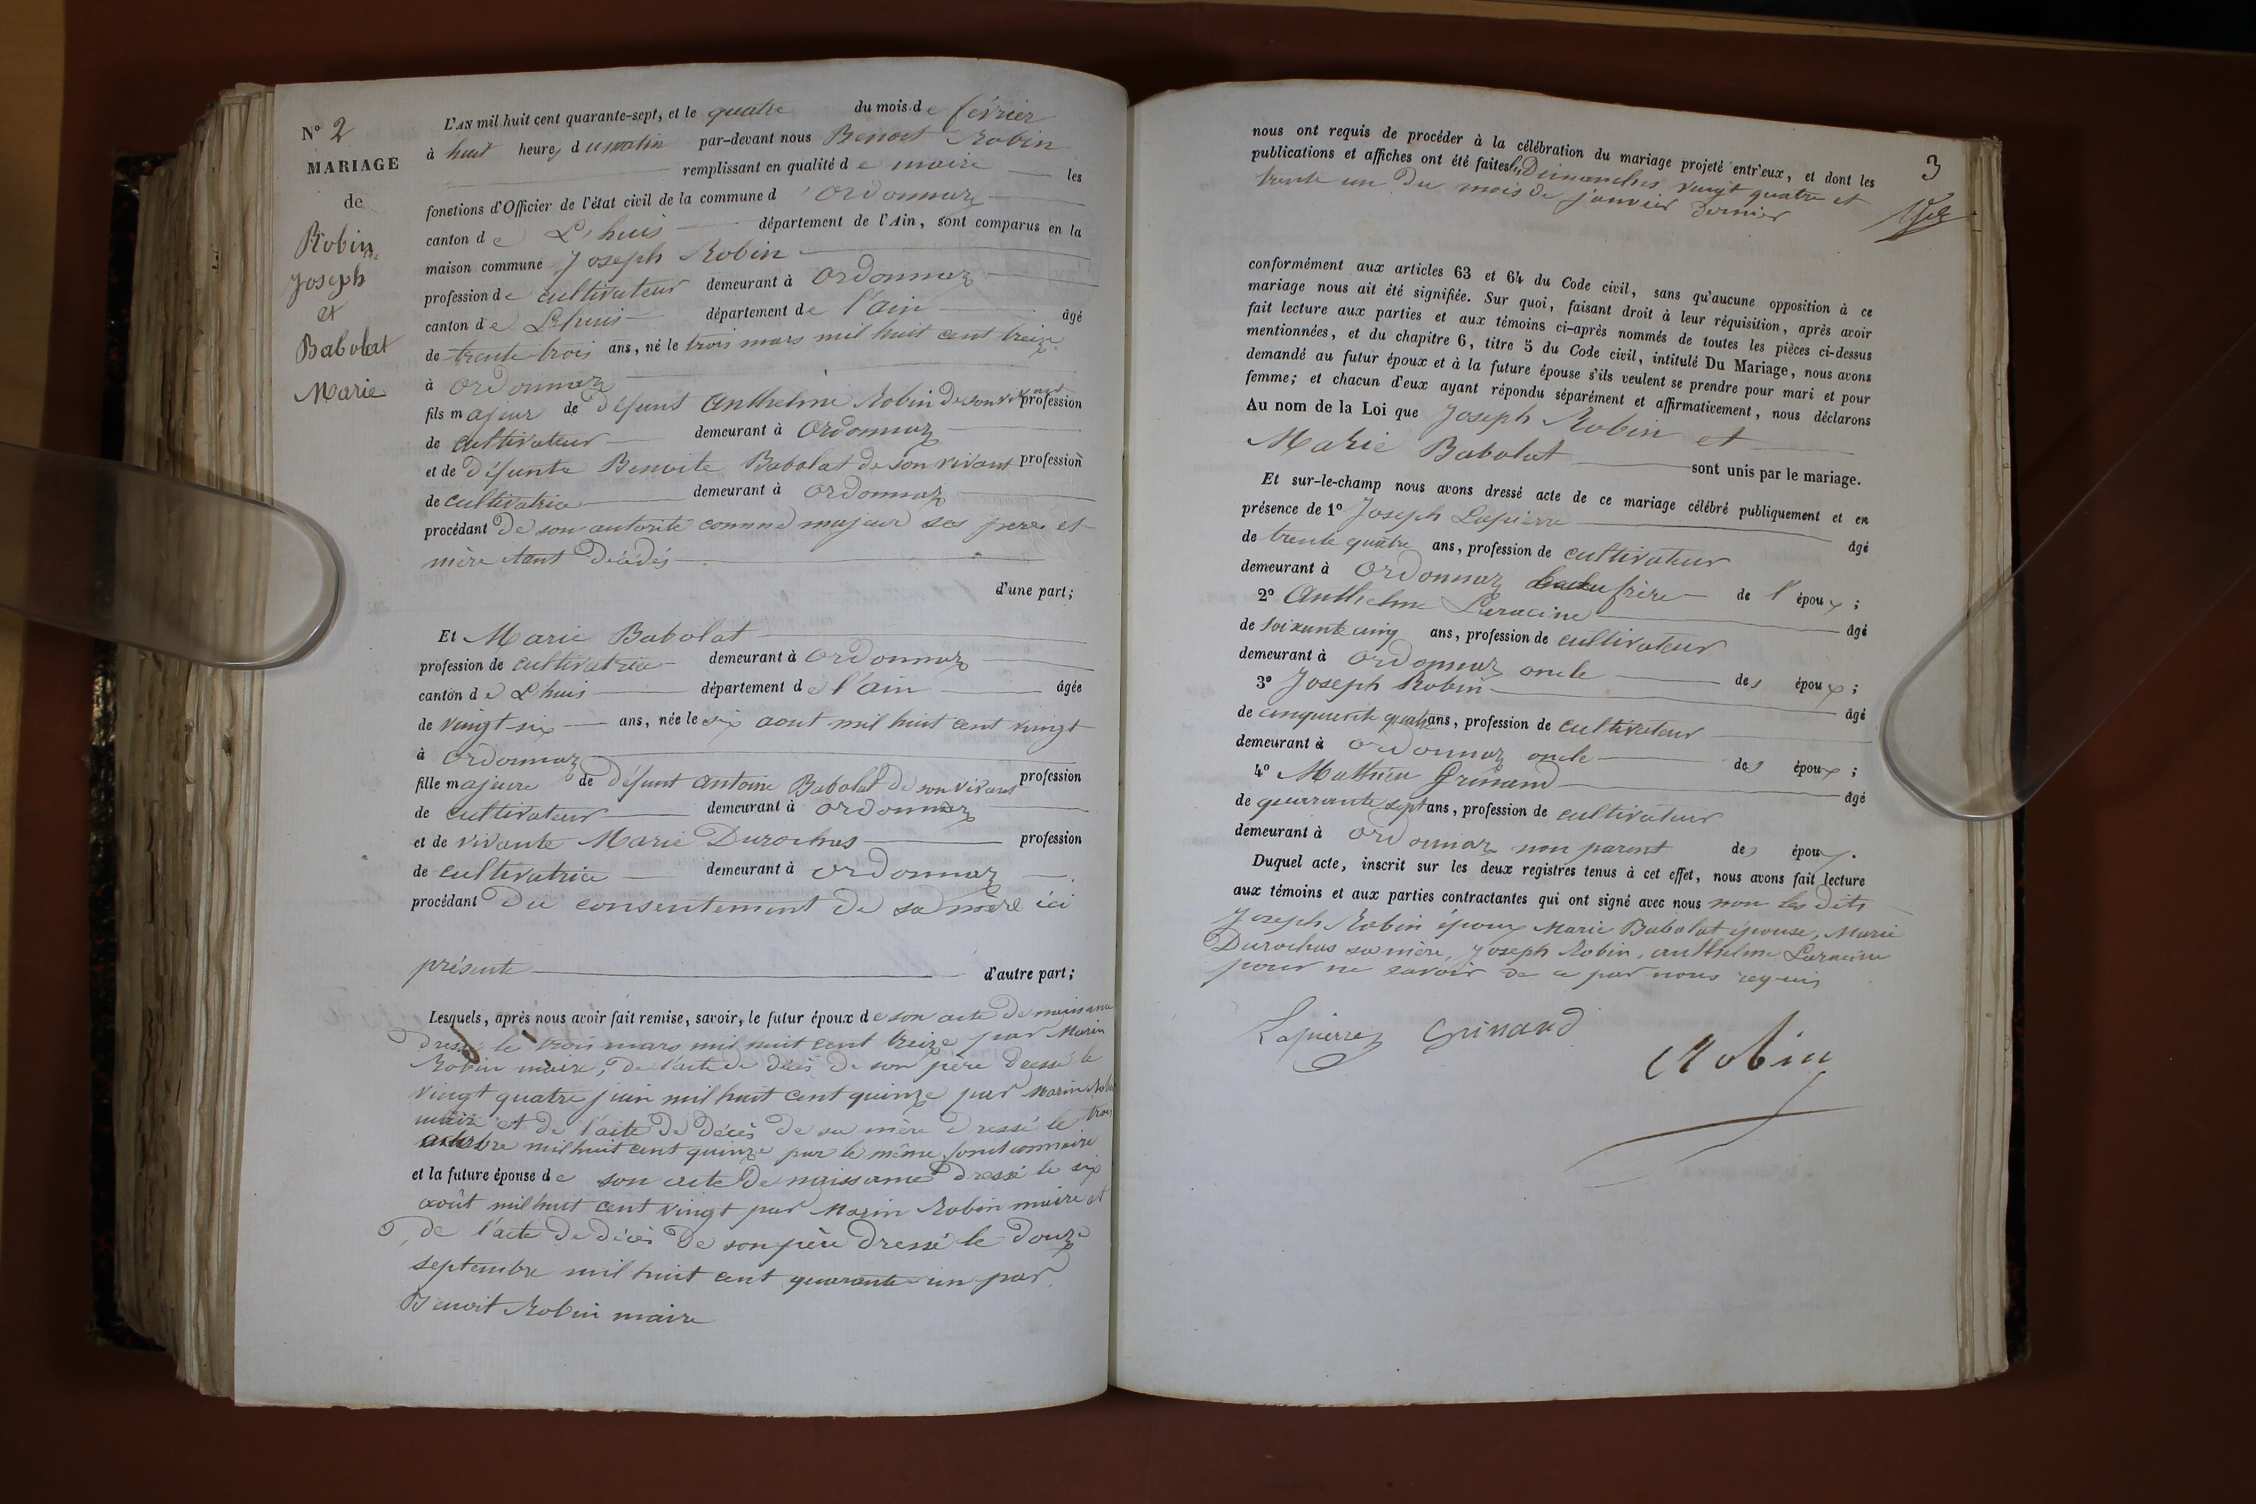 N° 2
MARIAGE
de
Robin
Joseph
et
Babolat
Marie
L'AN mil huit cent quarante-sept, et le quatre du mois de février
à huit heures du matin par-devant nous Benoit Robin
remplissant en qualité de maire les
fonctions d'Officier de l'état civil de la commune d'Ordonnaz
canton de L'huis département de l'Ain, sont comparus en la
maison commune Joseph Robin
profession de cultivateur demeurant à Ordonnaz
canton de L'huis département de l'ain âgé
de trente trois ans, né le trois mars mil huit cent treize
à Ordonnaz
fils majeur de défunt Anthelme Robin de son vivant profession
de cultivateur demeurant à Ordonnaz
et de défunte Benoite Babolat de son vivant profession
de cultivatrice demeurant à Ordonnaz
procédant de son autorité comme majeur ses père et
mère étant décédés
d'une part;
Et Marie Babolat
profession de cultivatrice demeurant à Ordonnaz
canton de L'huis département de l'ain âgée
de vingt six ans, née le six aout mil huit cent vingt
à Ordonnaz
fille majeure de défunt Antoine Babolat de son vivant profession
de cultivateur demeurant à Ordonnaz
et de vivante Marie Durochas profession
de cultivatrice demeurant à Ordonnaz
procédant du consentement de sa mère ici
présente d'autre part;
Lesquels, après nous avoir fait remise, savoir, le futur époux de son acte de naissance
dressé le trois mars mil huit cent treize par Marin
Robin maire, de l'acte de décès de son père dressé le
vingt quatre juin mil huit cent quinze par Marin Robin
maire et de l'acte de décès de sa mère dressé le trois
octobre mil huit cent quinze par le même fonctionnaire
et la future épouse de son acte de naissance dressé le six
août mil huit cent vingt par Marin Robin maire et
de l'acte de décès de son père dressé le douze
septembre mil huit cent quarante-un par
Benoit Robin maire
3
nous ont requis de procéder à la célébration du mariage projeté entr'eux, et dont les
publications et affiches ont été faites les Dimanches vingt quatre et
trente un du mois de janvier dernier
conformément aux articles 63 et 64 du Code civil, sans qu'aucune opposition à ce
mariage nous ait été signifiée. Sur quoi, faisant droit à leur réquisition, après avoir
fait lecture aux parties et aux témoins ci-après nommés de toutes les pièces ci-dessus
mentionnées, et du chapitre 6, titre 5 du Code civil, intitulé Du Mariage, nous avons
demandé au futur époux et à la future épouse s'ils veulent se prendre pour mari et pour
femme; et chacun d'eux ayant répondu séparément et affirmativement, nous déclarons
Au nom de la Loi que Joseph Robin et
Marie Babolat sont unis par le mariage.
Et sur-le-champ nous avons dressé acte de ce mariage célébré publiquement et en
présence de 1° Joseph Lapierre âgé
de trente quatre ans, profession de cultivateur
demeurant à Ordonnaz beau frère de l'époux;
2° Anthelme Laracine âgé
de soixante cinq ans, profession de cultivateur
demeurant à Ordonnaz oncle des époux;
3° Joseph Robin âgé
de cinquante quatre ans, profession de cultivateur
demeurant à Ordonnaz oncle des époux;
4° Mathieu Grinand âgé
de quarante sept ans, profession de cultivateur
demeurant à Ordonnaz non parent des époux.
Duquel acte, inscrit sur les deux registres tenus à cet effet, nous avons fait lecture
aux témoins et aux parties contractantes qui ont signé avec nous non les dits
Joseph Robin époux Marie Babolat épouse, Marie
Durochas sa mère, Joseph Robin, anthelme Laracine
pour ne savoir de ce par nous requis
Lapierre Grinand
Robin